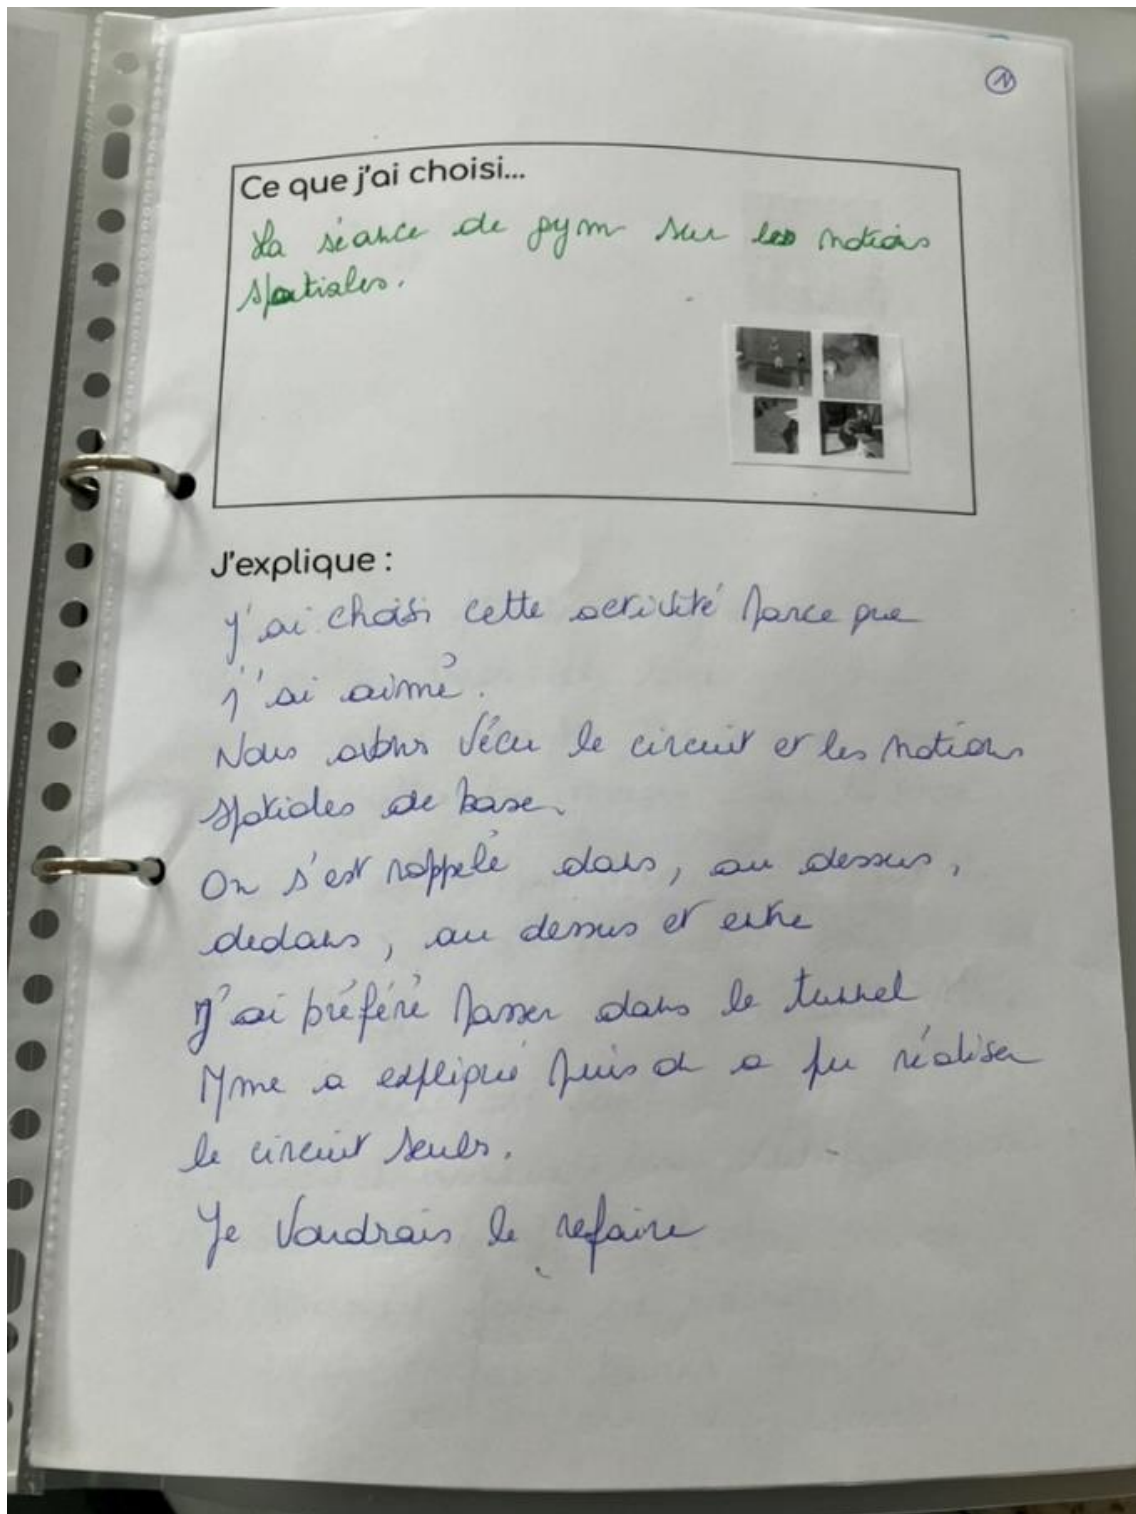 1
Ce que j'ai choisi...
La séance de gym sur les notions
spatiales.
J'explique :
J'ai choisi cette activité parce que
j'ai aimé.
Nous avons vécu le circuit et les notions
spatiales de base.
On s'est rappelé dans, au dessus,
dedans, au dessus et entre
J'ai préféré passer dans le tunnel
Mme a expliqué puis on a pu réaliser
le circuit seuls.
Je voudrais le refaire